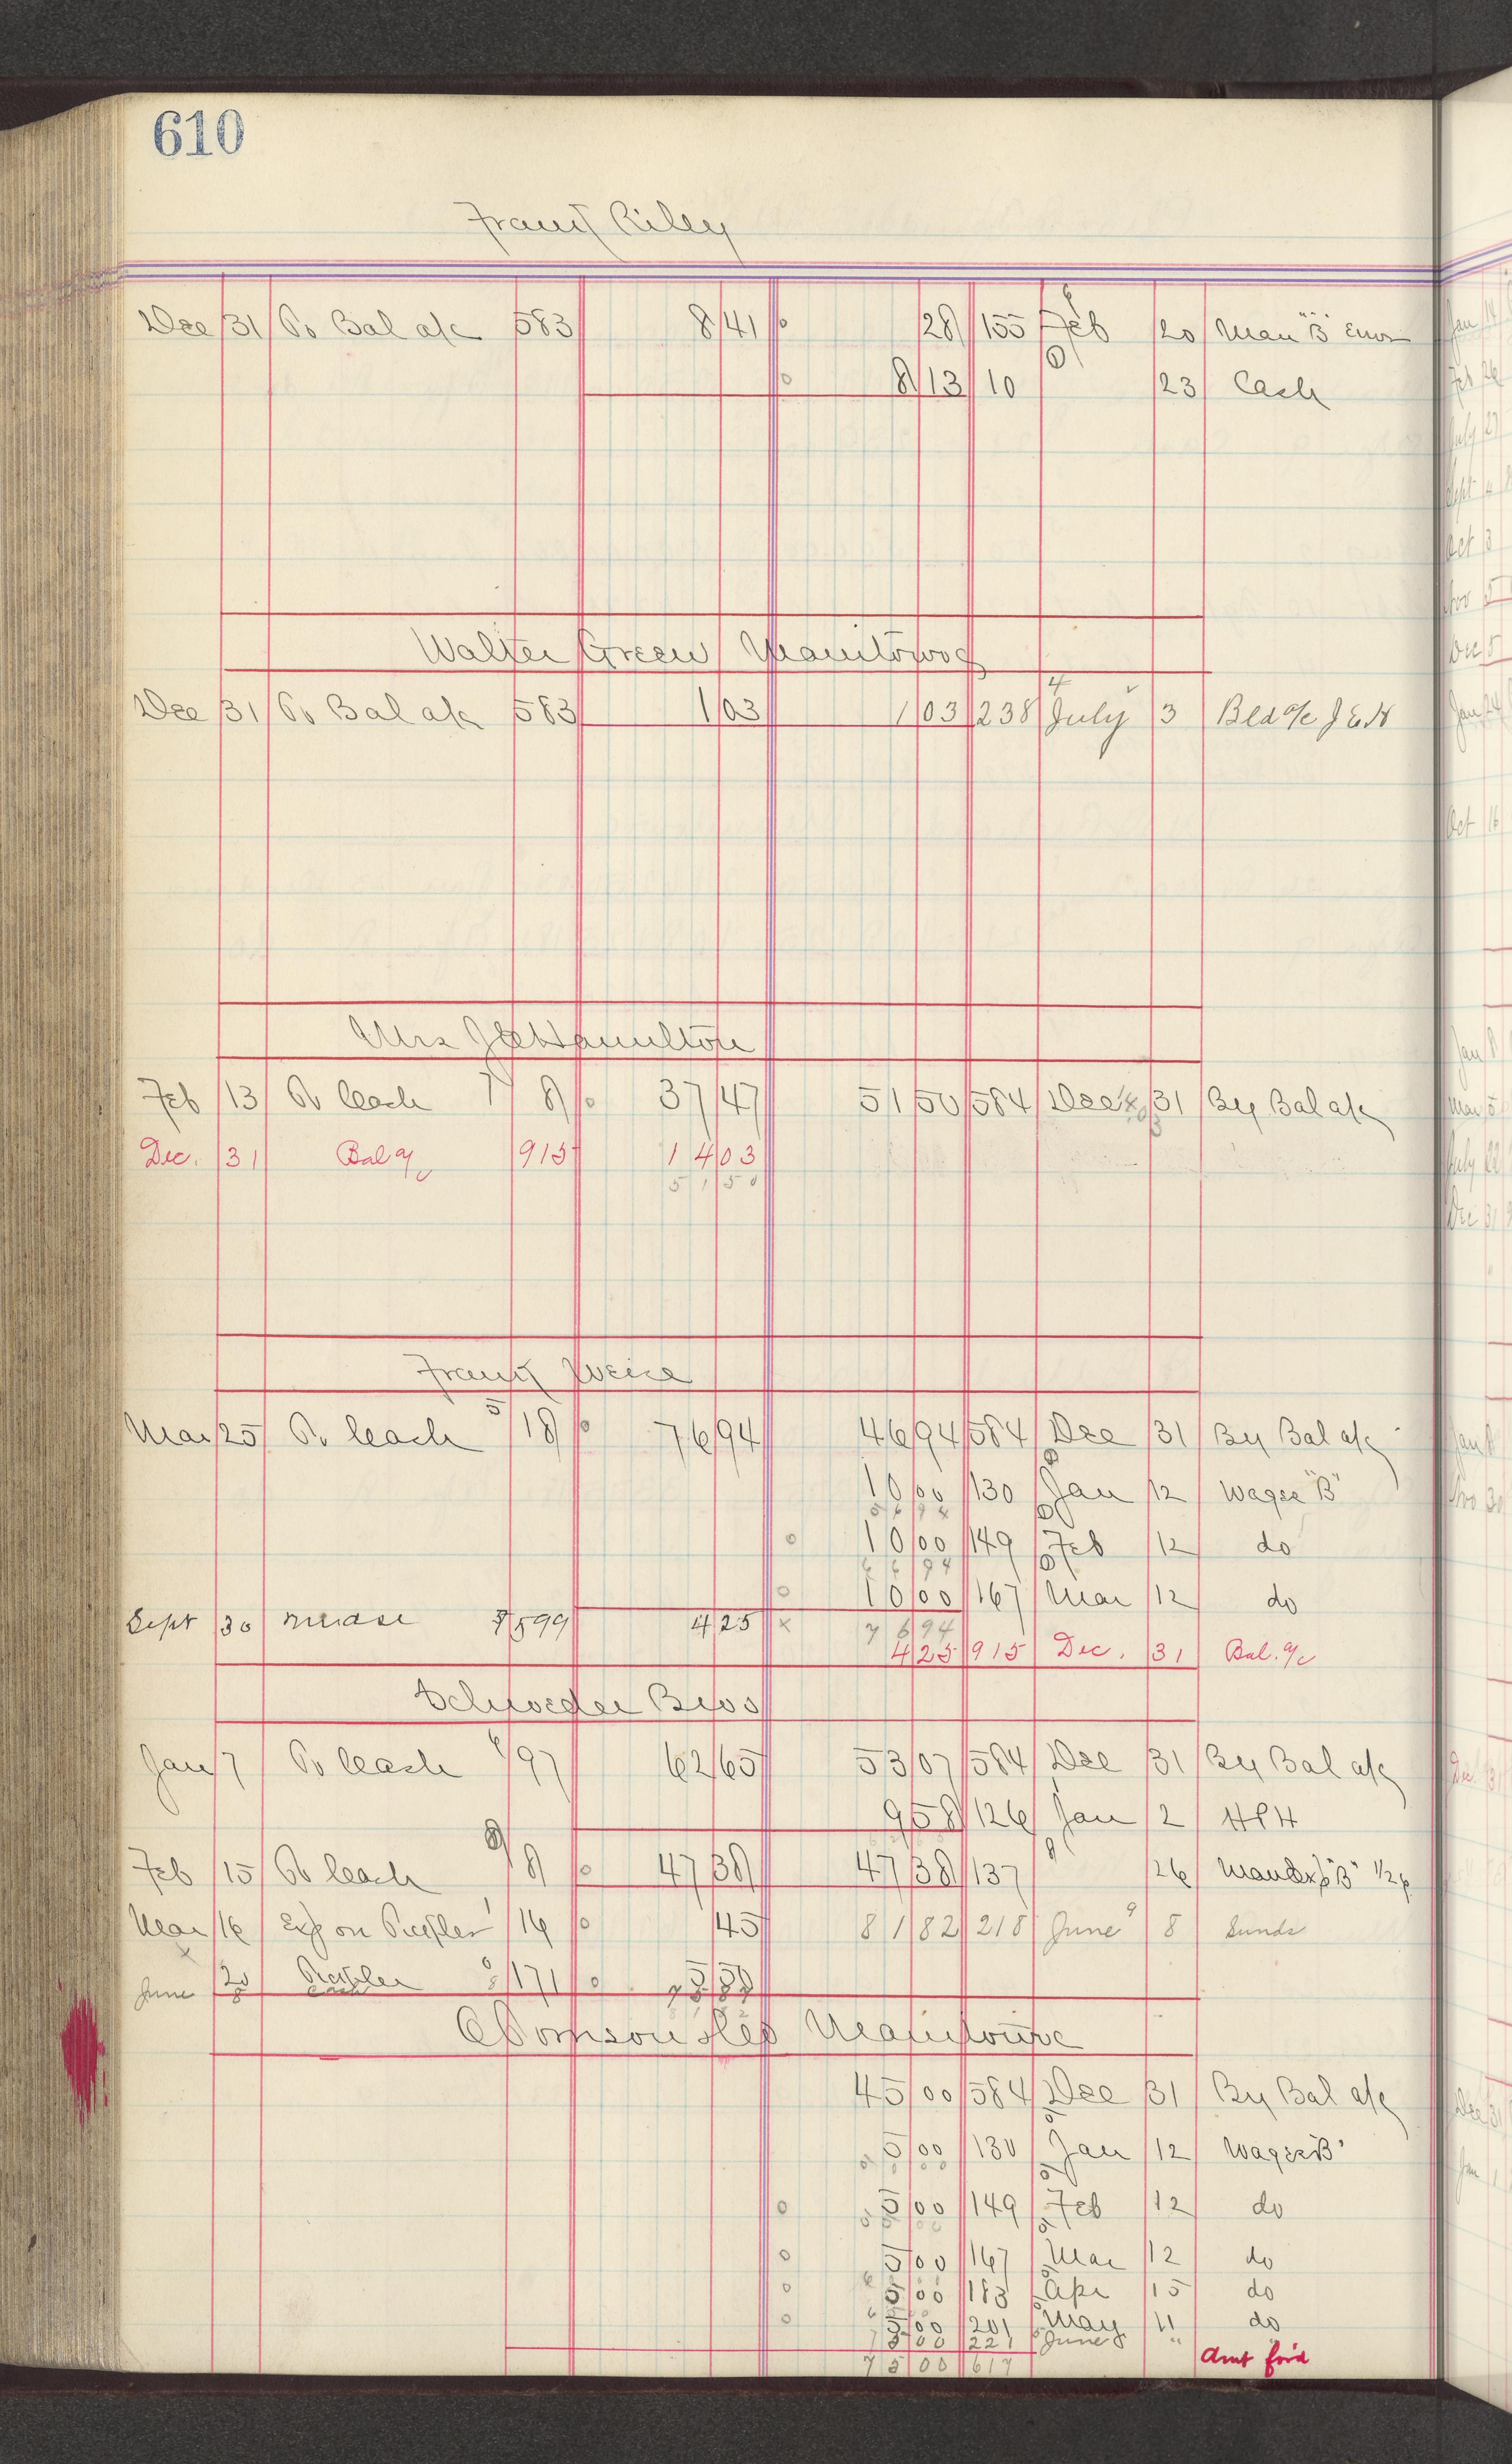 610
Frank Riley
Dec 31 To Bal a/c 583 8 41 28 155 Feb 20 Man "B" Error
8 13 10 23 Cash
Walter Green Manitowoc
Dec 31 To Bal a/c 583 1 03 1 03 238 July 3 Bld a/c J E H
Mrs J E Hamilton
Feb 13 To Cash 8 37 47 51 50 584 Dec 31 By Bal a/c
Dec. 31 Bal a/c 915 14 03
51 50
Frank Weise
Mar 25 To Cash 18 76 94 46 94 584 Dec 31 By Bal a/c
10 00 130 Jan 12 Wages "B"
56 94
10 00 149 Feb 12 do
66 94
10 00 167 Mar 12 do
Sept 30 Mdse 599 4 25 76 94
4 25 915 Dec. 31 Bal. a/c
Schroeder Bros
Jan 7 To Cash 97 62 65 53 07 584 Dec 31 By Bal a/c
9 58 126 Jan 2 HPH
Feb 15 To Cash 8 47 38 47 38 137 26 "B" 1/26
Mar 16 Exp on 16 45 81 82 218 June 8 Sunds
June 20 171
Manitowoc
45 00 584 Dec 31 By Bal a/c
5 00 130 Jan 12 Wages "B"
5 00 149 Feb 12 do
5 00 167 Mar 12 do
5 00 183 Apr 15 do
5 00 201 May 11 do
5 00 221 June "
75 00 617 Amt for'd